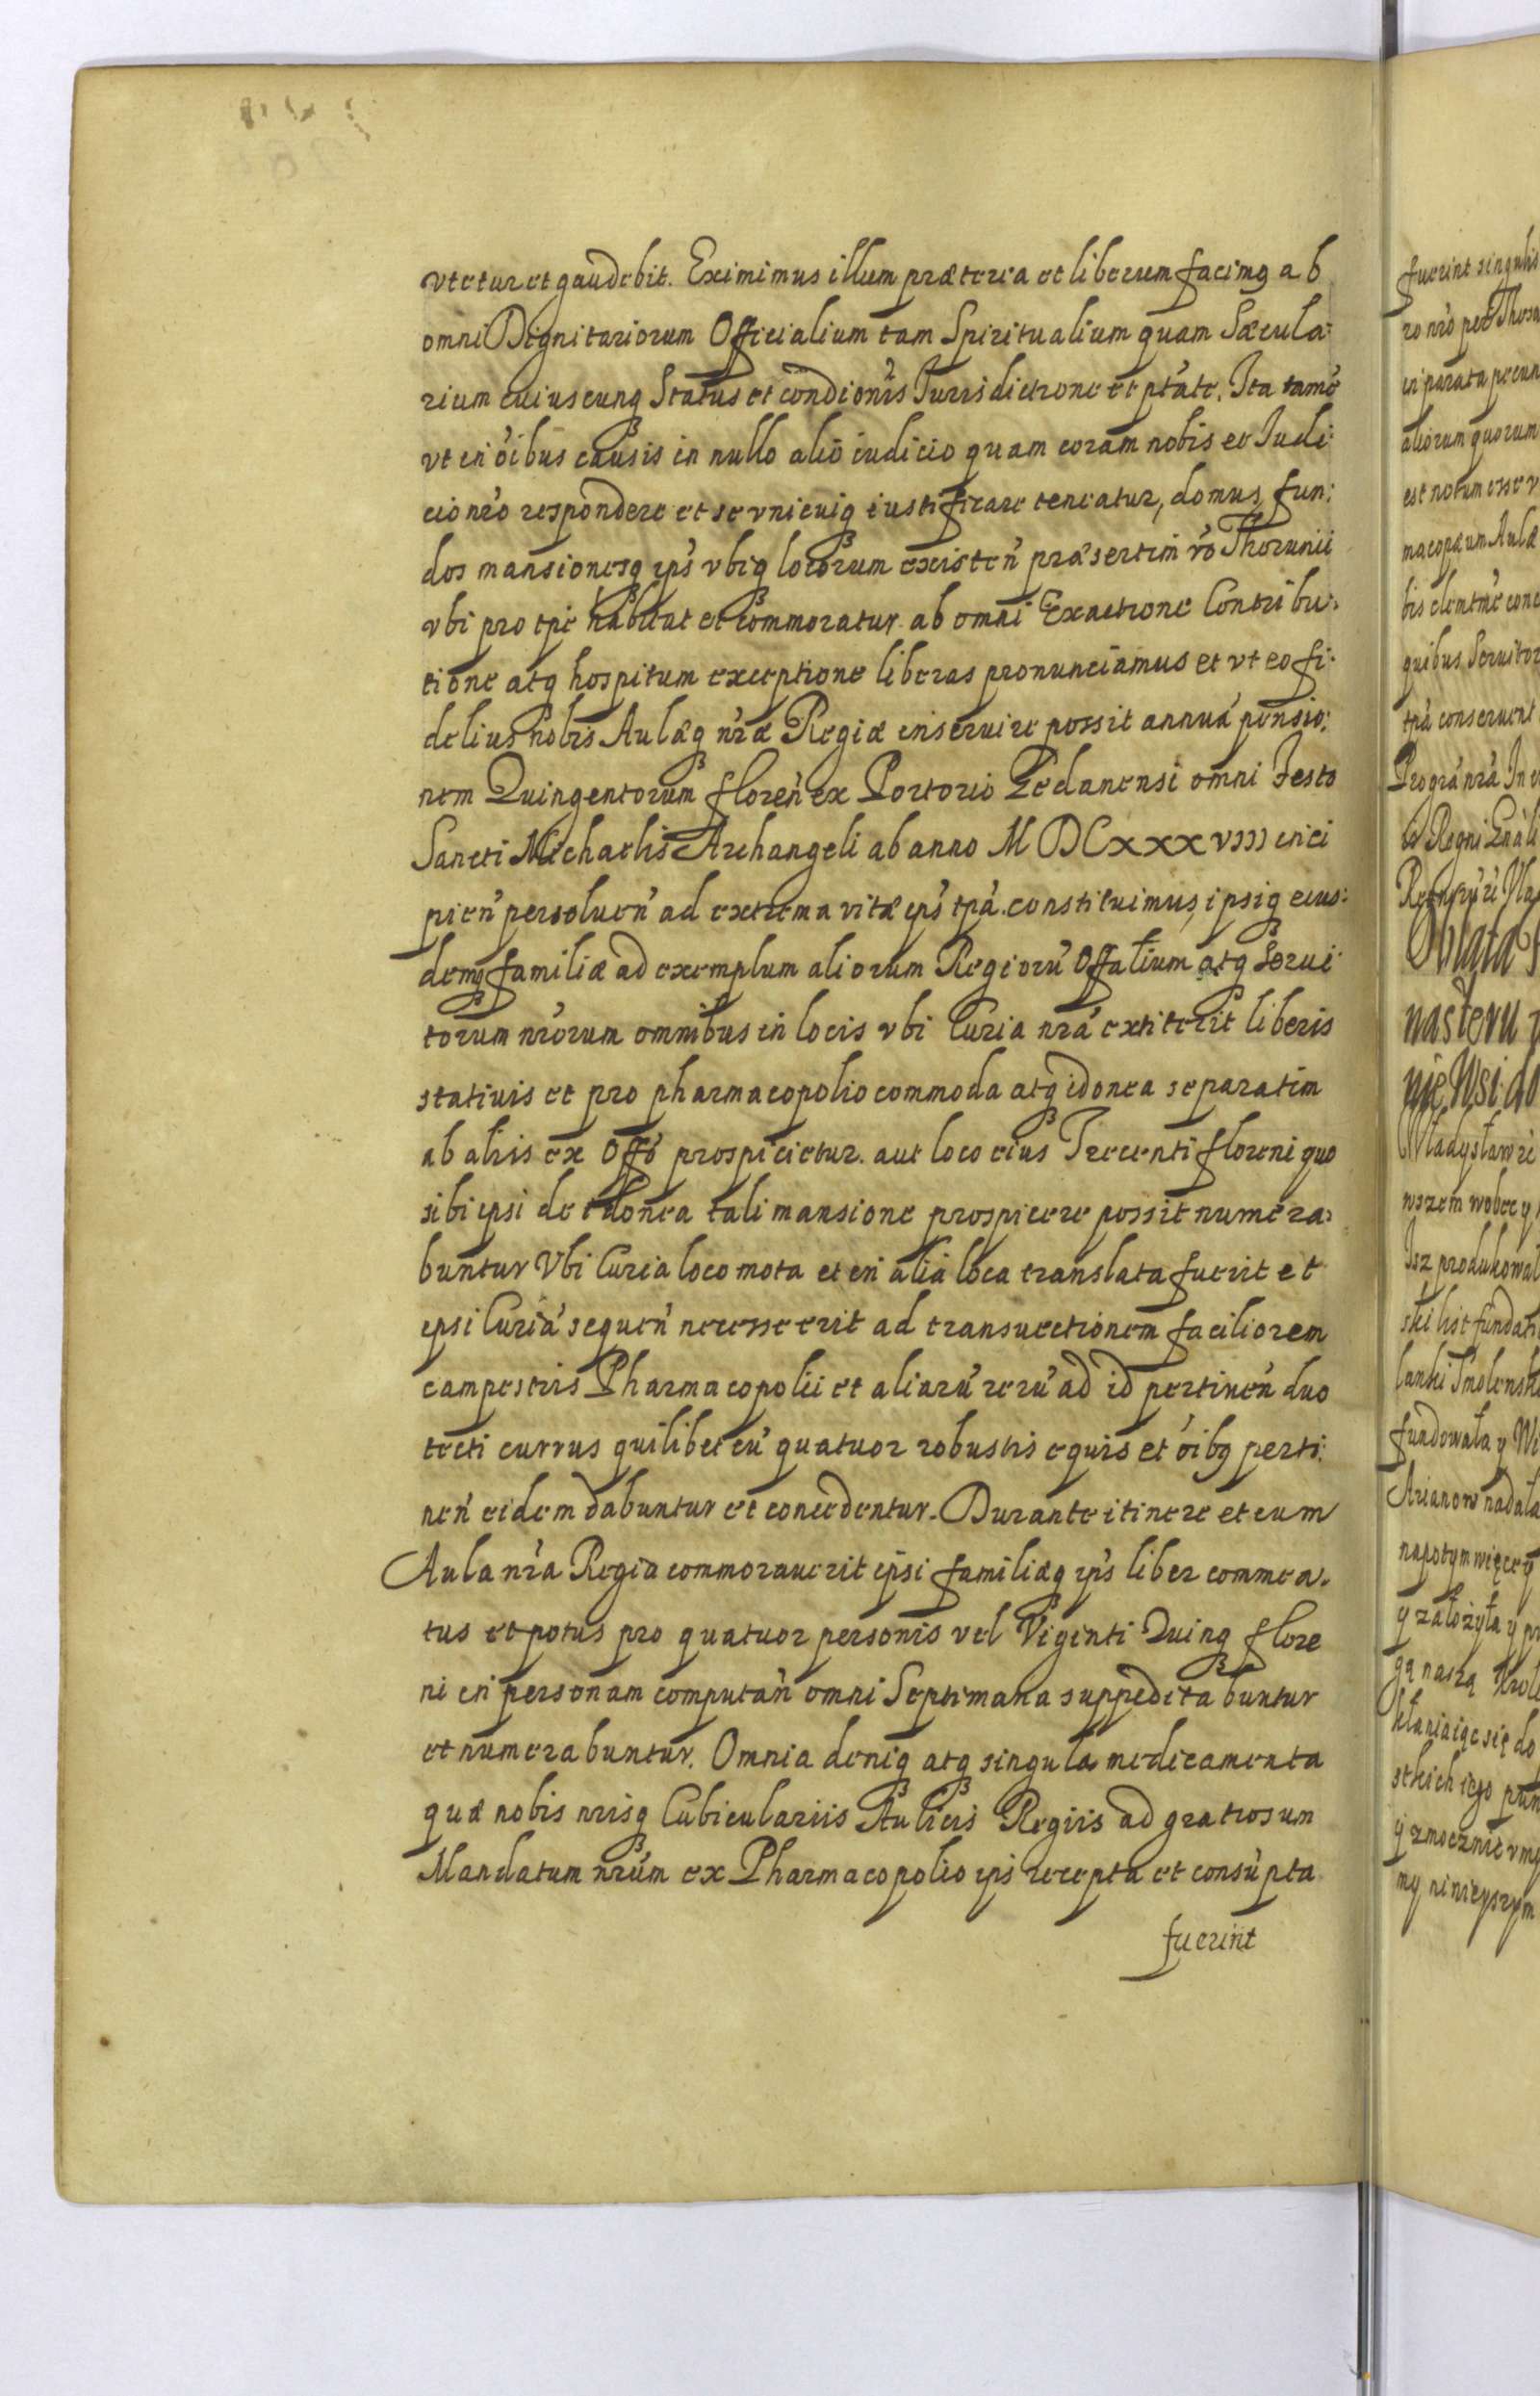 vtetur et gaudebit. Eximimus illum præterea et liberum facimq ab
omni Dignitariorum Officialium tam Spiritualium quam Sæcula:
rium cuiuscunq Status et condionis Jurisdictione et ptate. Ita tamē
vt in oibus causis in nullo alio iudicio quam coram nobis et Judi:
cio nro respondere et se vnicuiq iustificare teneatur, domus, fun:
dos mansionesq ips vbiq locorum existen præsertim vo Thorunii
vbi pro tpe habitat et commoratur ab omni Exactione Contribu:
tione atq hospitum exceptione liberas pronunciamus et vt eo fi:
delius nobis Aulæq nræ Regiæ inseruire possit annuá pensio:
nem Quingentorum floren ex Portorio Gedanensi omni Festo
Sancti Michaelis Archangeli ab anno MDCxxxviii inci
pien persoluen ad extrema vitæ ips tpa constituimus, ipsiq eius:
demq familiæ ad exemplum aliorum Regiorū Offalium atq Serui
torum nrorum omnibus in locis vbi Curia nra extiterit liberis
stativis et pro pharmacopolio commoda atq idonea separatim
ab aliis ex Offo prospicietur. aut loco eius Trecenti floreni quo
sibi ipsi de idonea tali mansione prospicere possit numera:
buntur Vbi Curia loco mota et in alia loca translata fuerit et
ipsi Curiā sequen necesse erit ad transuectionem faciliorem
campestris Pharmacopolii et aliarū rerū ad id pertinen duo
tecti currus quilibet cū quatuor robustis equis et oibq perti:
nen eidem dabuntur et concedentur. Durante itinere et cum
Aula nra Regia commorauerit ipsi familiæq ips liber commea:
tus et potus pro quatuor personis vel Viginti Quinq flore
ni in personam computan omni Septimana suppedita buntur
et numerabuntur. Omnia deniq atq singula medicamenta
quæ nobis nrisq Cubiculariis Aulicis Regiis ad gratiosum
Mandatum nrum ex Pharmacopolio ips recepta et consūpta
fuerint
fuerint singulis
ro nro per Thesa
in parata pecun
aliorum quorum
est notum esse v
macopæum Aulæ
bis clemtme conc
quibus Seruitor
tpa conseruent
Regni Gnali
Oblata
nasteru
nie Wsi do
Władysław
wszem wobec y
Isz produkował
ski list fundat
lanki Smolensk
fundowała y Mi
Arianow nadała
napotym więcey
y założyła y pr
gą naszą Krole
kłaniaiąc się do
stkich iego pun
y zmocznić vmy
my ninieyszym